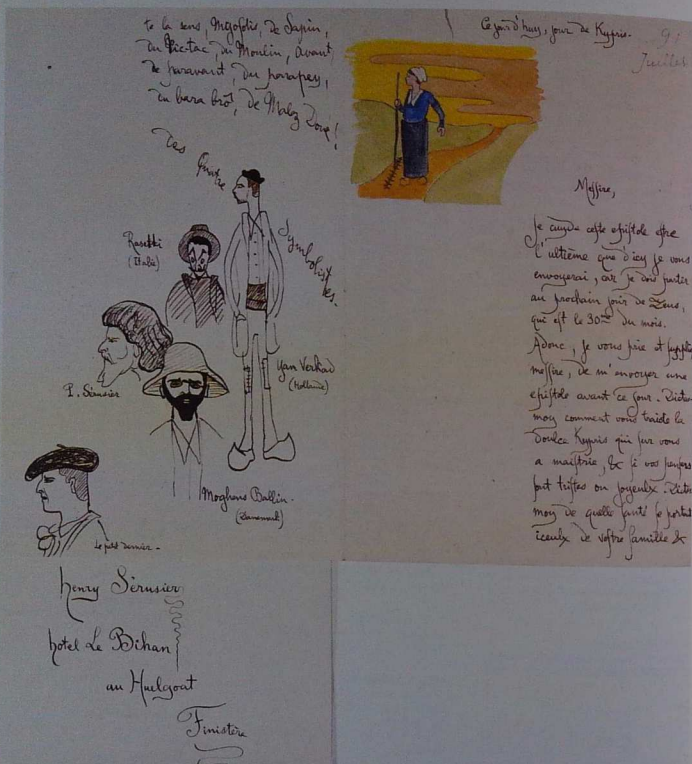 te la sens, Mijofdis, de Sapin,
du Tic-tac, du Moulin, avant
de paravant, du parapey,
du bara brôt, de Malez Doué!
Les Quatre
Symbolistes.
Rasetti
(Italie)
P. Sérusier
Yan Verkad
(Hollande)
Moghens Ballin.
(Danemark)
Le petit dernier.
henry Sérusier
hotel Le Bihan
au Huelgoat
Finistère
Ce jour d'huy, jour de Kypris.
91
Juillet
Messire,
Je cuyde ceste épistole estre
l'ultième que d'icy je vous
envoyerai, car je dois partir
au prochain jour de Zeus,
qui est le 30me du mois.
Adonc, je vous prie et
messire, de m'envoyer une
épistole avant ce jour.
moy comment vous traicte la
doulce Kypris qui sur vous
a maistrie, & si vos
sont tristes ou joyeulx.
moy de quelle santé se
iceulx de vostre famille &